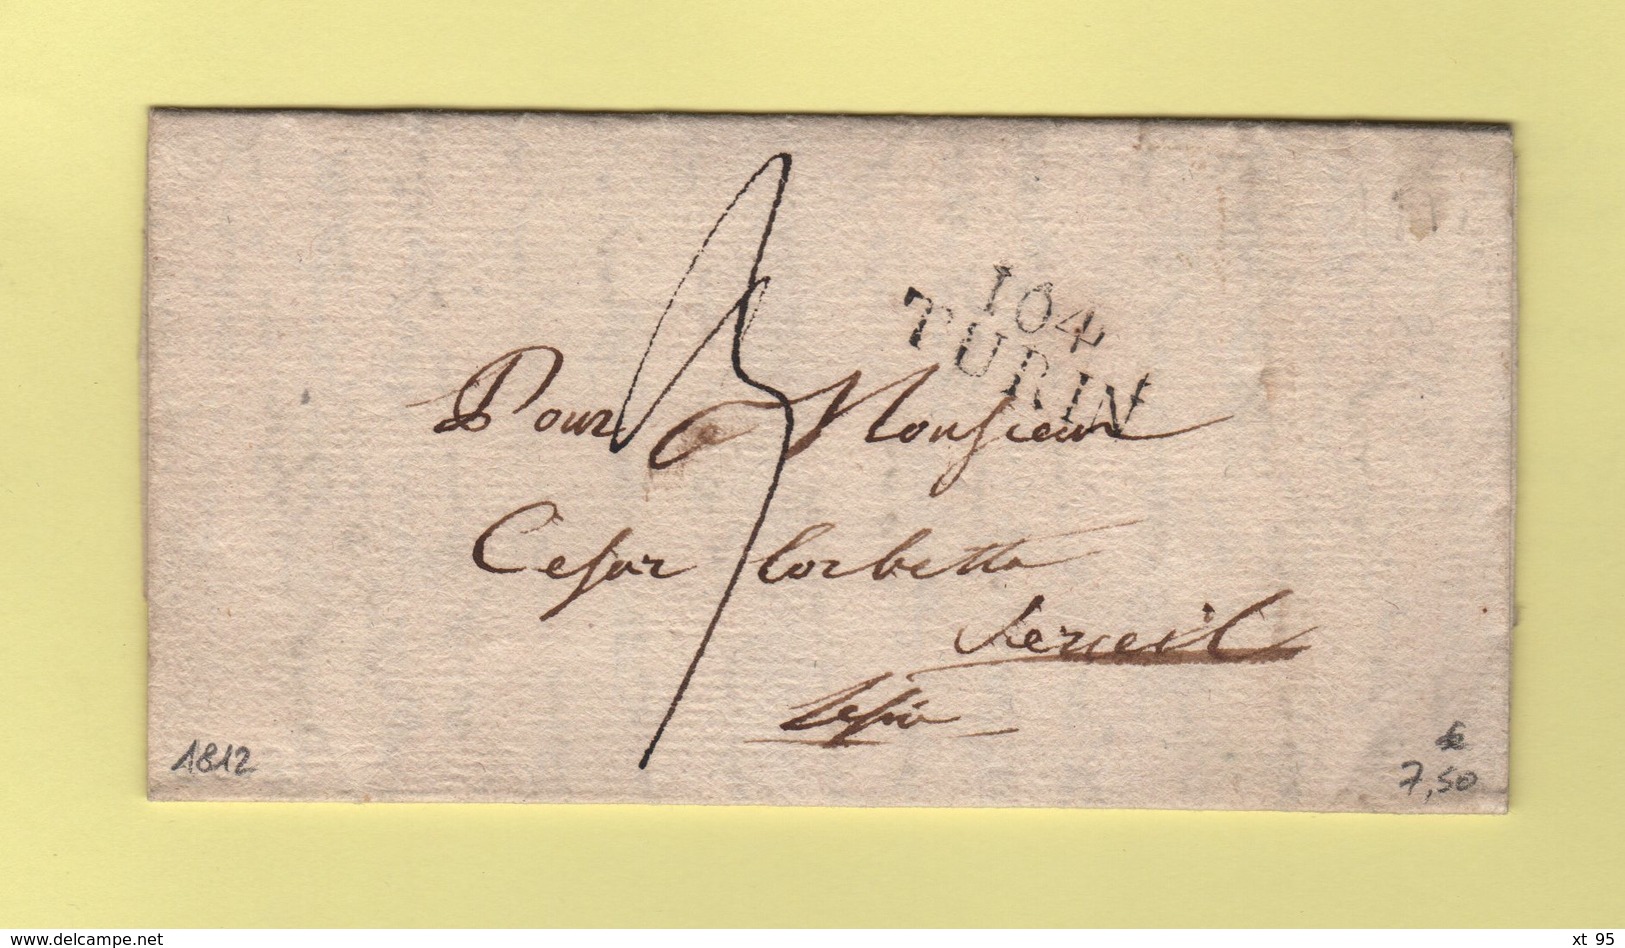 3
104
TURIN
Pour Monsieur
Cesar Corbetta
Verceil
1812
7,50
www.delcampe.net
xt 95